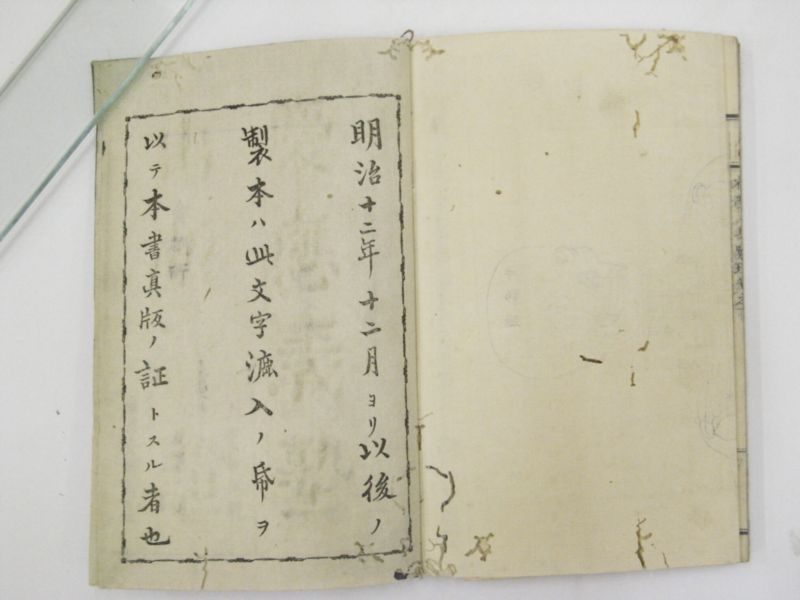 明治十二年十二月ヨリ以後ノ
製本ハ此文字漉入ノ帋ヲ
以テ本書真版ノ証トスル者也